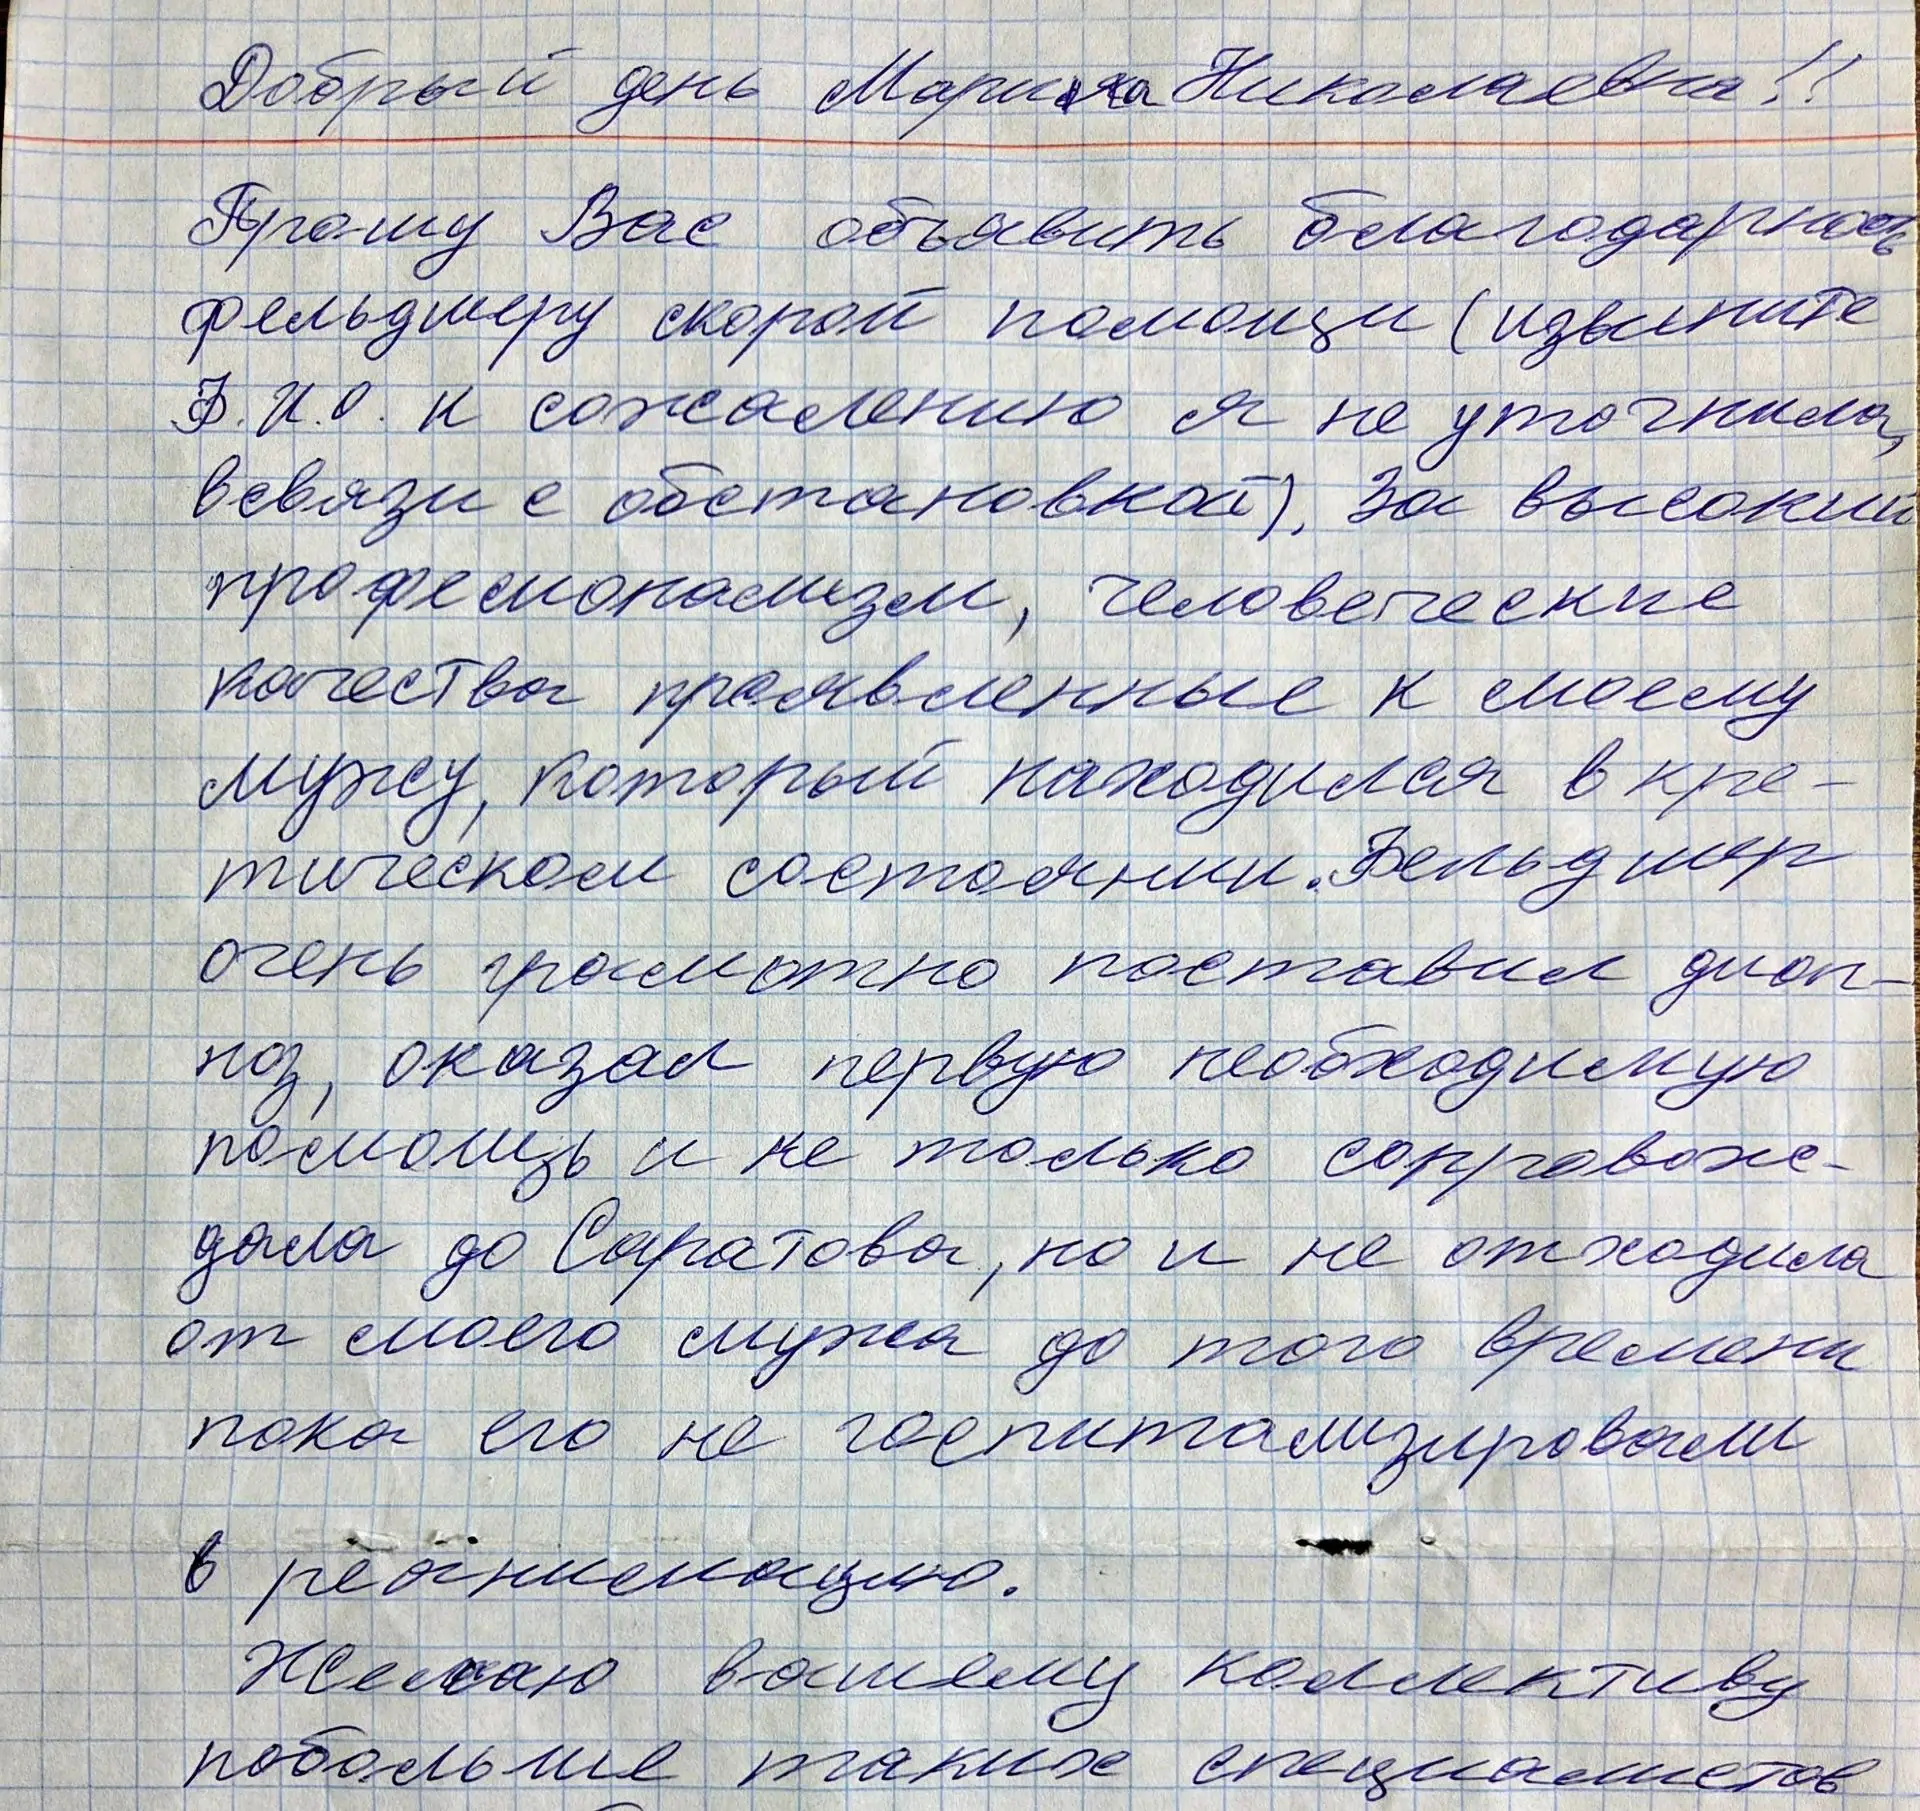 Добрый день Марина Николаевна!!
Прошу Вас объявить благодарность
фельдшеру скорой помощи (извините
Ф.И.О. к сожалению я не уточнила,
всвязи с обстановкой). За высокий
професионализм, человеческие
качества проявленные к моему
мужу, который находился в кре-
тическом состоянии. Фельдшер
очень грамотно поставил диог-
ноз, оказал первую необходимую
помощь и не только сопровож-
дала до Саратова, но и не отходила
от моего мужа до того времени
пока его не госпитализировали
в реанимацию.
Желаю вашему коллективу
побольше таких специалистов